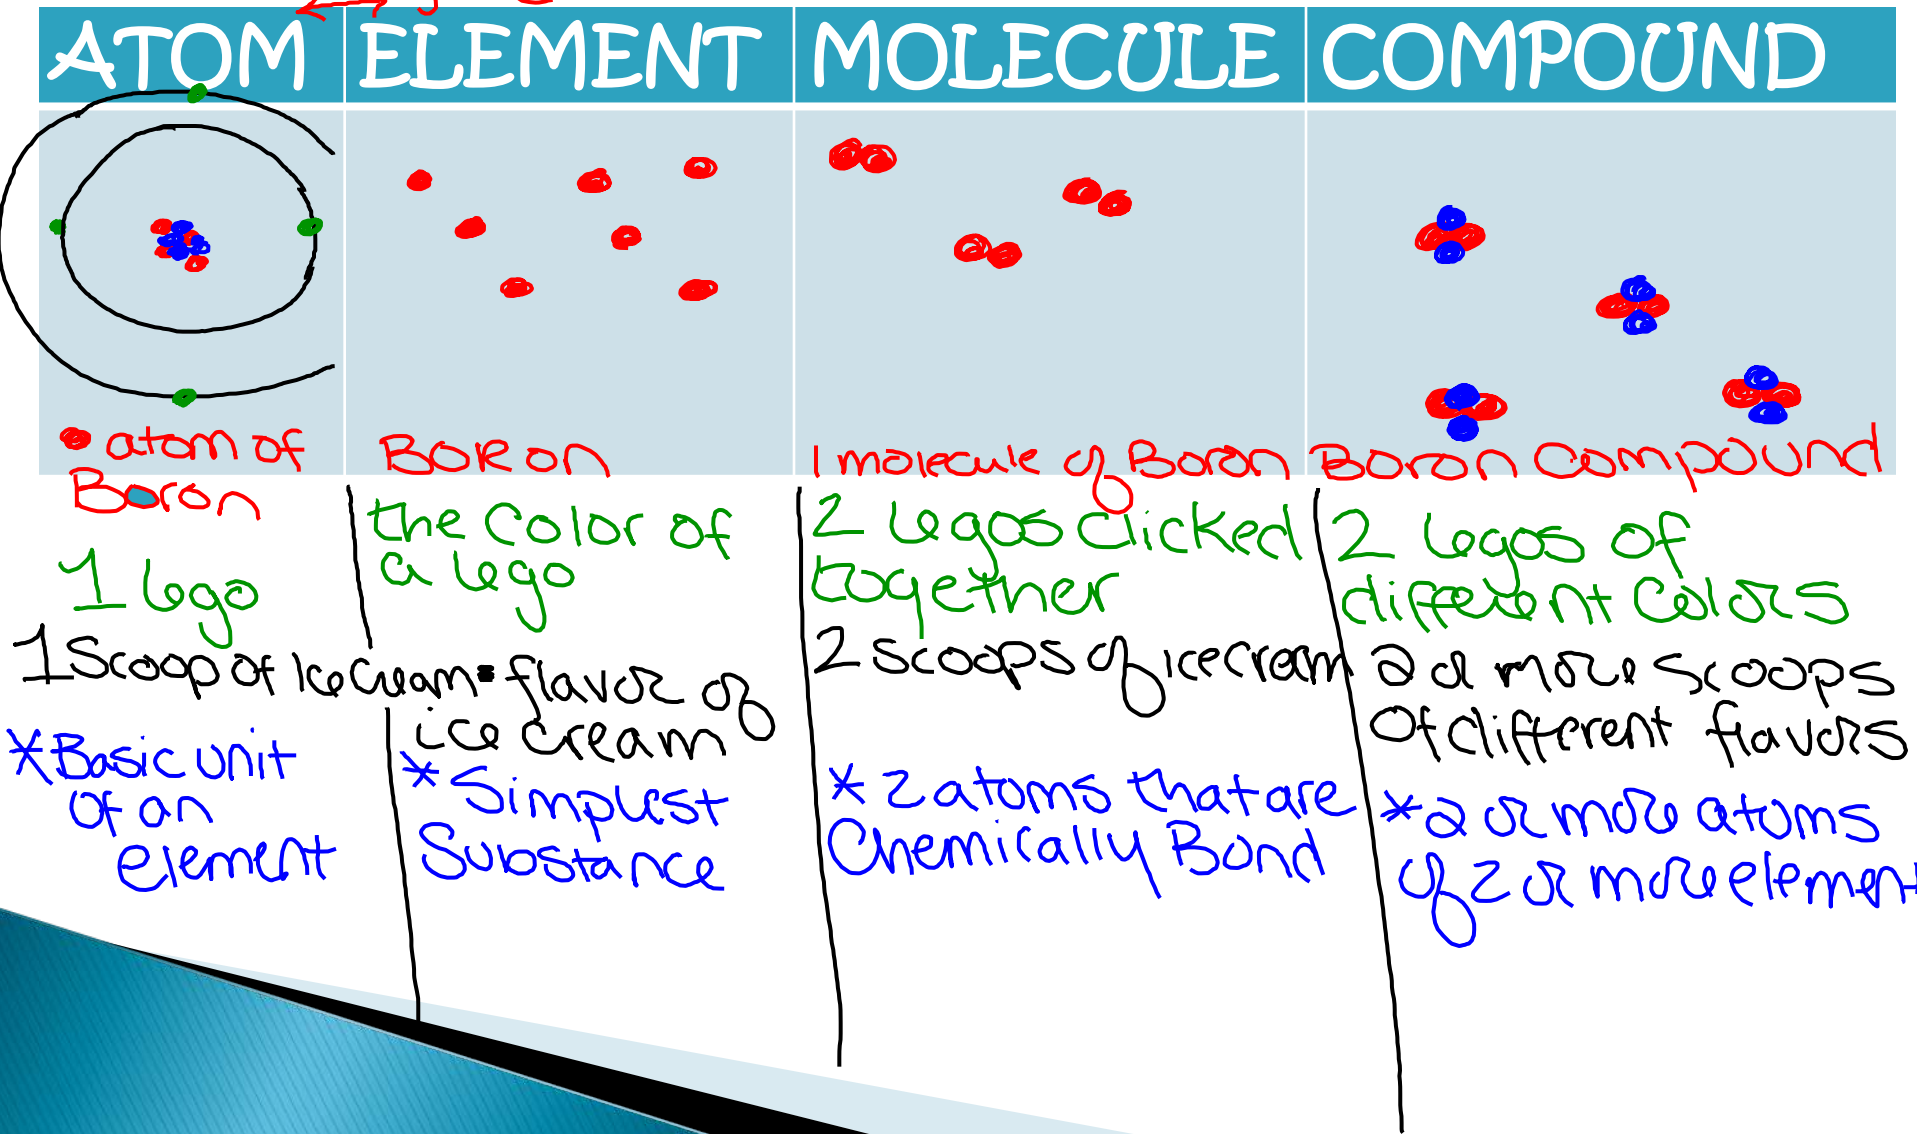 ATOM ELEMENT MOLECULE COMPOUND
atom of
Boron
Boron
1 molecule of Boron
Boron Compound
1 lego
the Color of
a lego
2 legos clicked
together
2 legos of
different Colors
1 Scoop of Ice Cream = flavor of
ice cream
2 scoops of ice cream
2 or more scoops
Of different flavors
*Basic unit
Of an
element
*Simplest
Substance
*2 atoms that are
Chemically Bond
*2 or more atoms
of 2 or more element